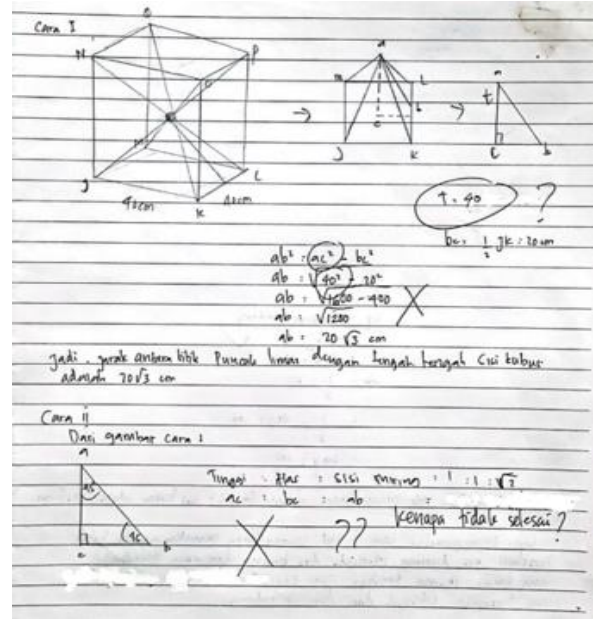 Cara I
O
N
P
O
M
J
K
L
40cm
40cm
→
a
M
L
b
c
J
K
→
a
t
c
b
t = 40 ?
bc = 1/2 JK = 20 cm
ab² = ac² - bc²
ab = √40² - 20²
ab = √1600 - 400
ab = √1200
ab = 20√3 cm
Jadi, jarak antara titik Puncak limas dengan tengah tengah sisi kubus
adalah 20√3 cm
Cara ii
Dari gambar cara 1
a
45
45
c
b
Tinggi : Alas : sisi miring = 1 : 1 : √2
ac : bc : ab =
?? Kenapa tidak selesai ?